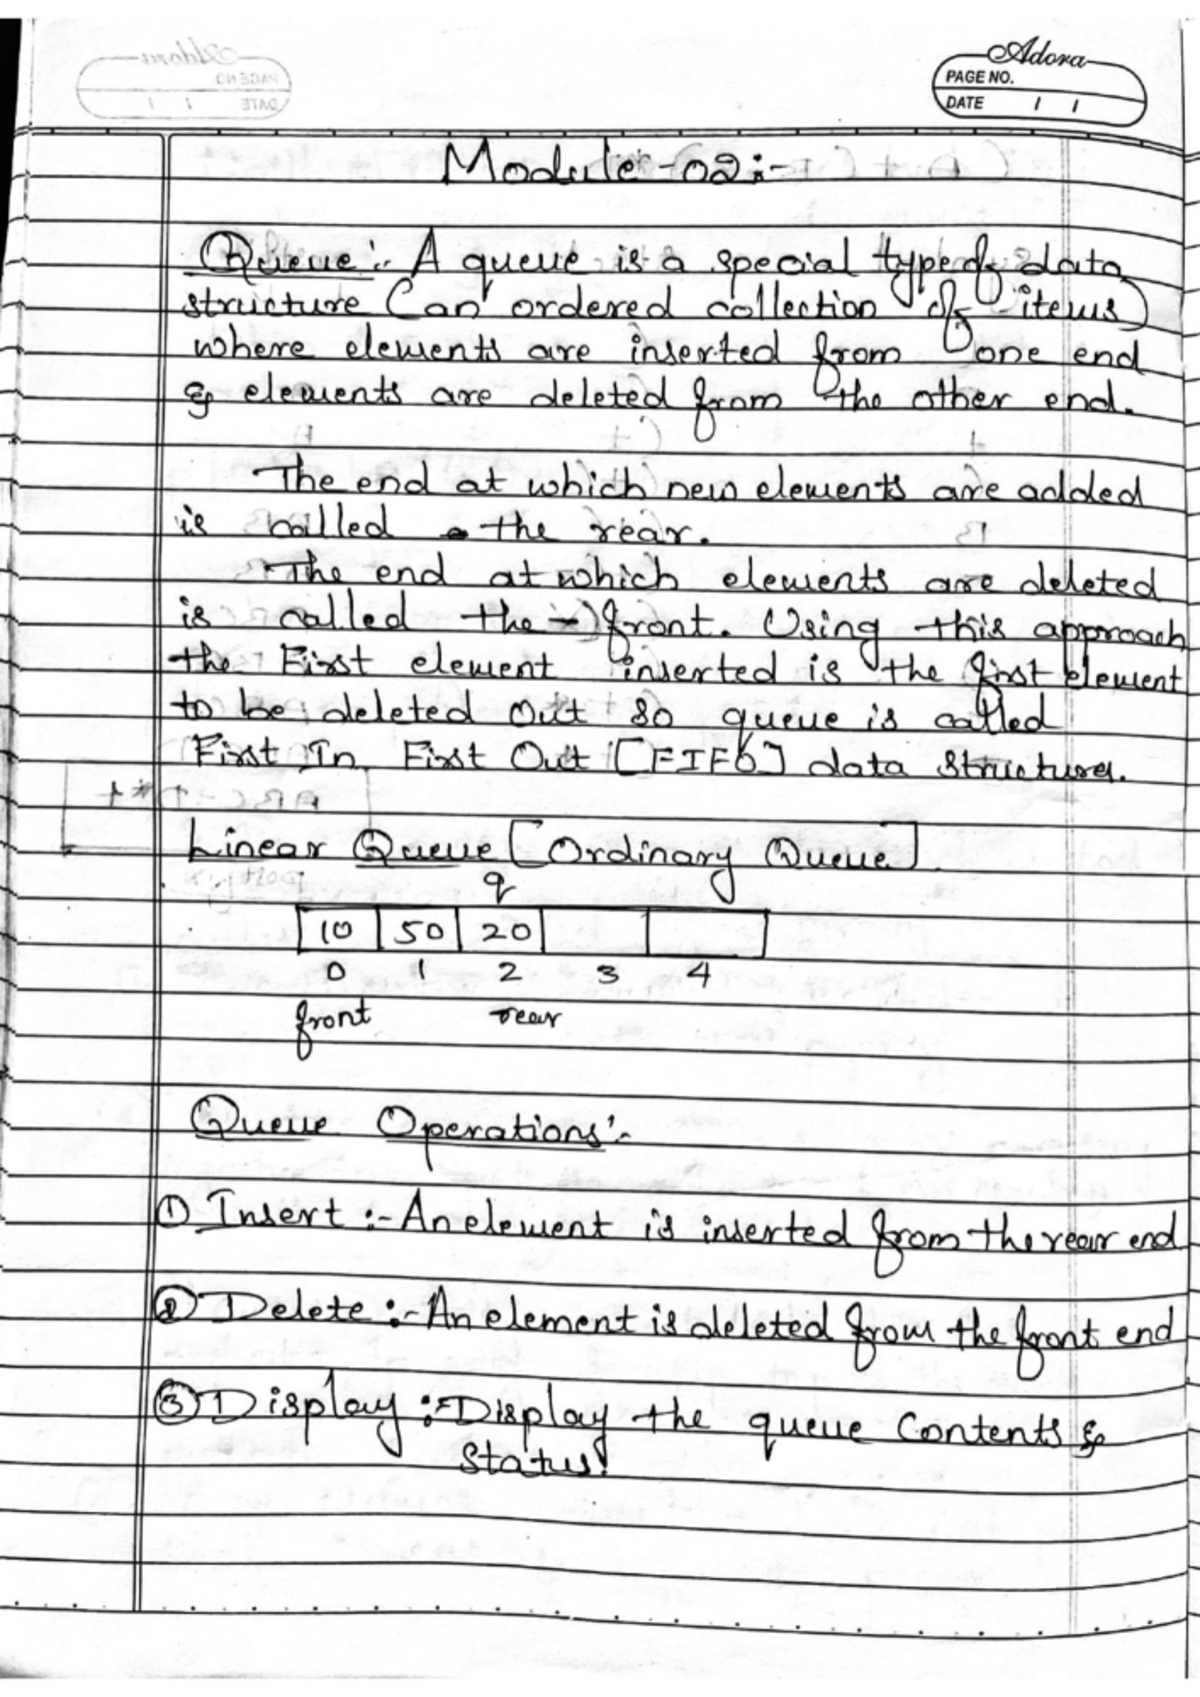 Adora
PAGE NO.
DATE / /
Module-02:-
Queue:- A queue is a special type of data
structure (an ordered collection of items)
where elements are inserted from one end
& elements are deleted from the other end.
The end at which new elements are added
is called the rear.
The end at which elements are deleted
is called the front. Using this approach
the First element inserted is the first element
to be deleted out so queue is called
First In First Out [FIFO] data structures.
Linear Queue [Ordinary Queue]
q
10 50 20
0 1 2 3 4
front rear
Queue Operations:-
① Insert :- An element is inserted from the rear end
② Delete :- An element is deleted from the front end
③ Display :- Display the queue Contents &
Status!